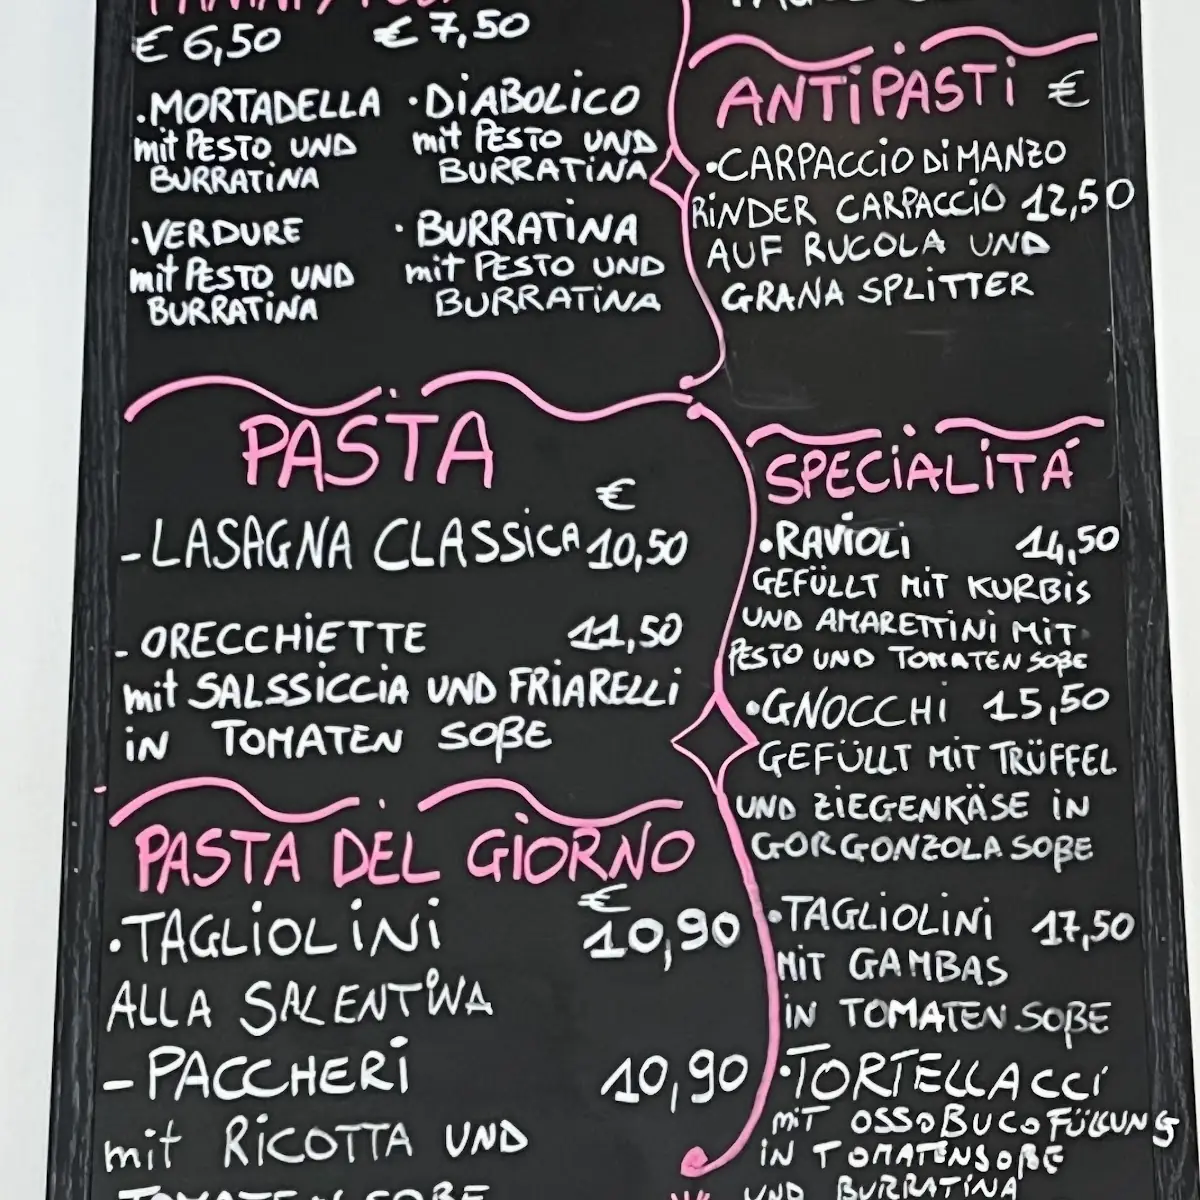 € 6,50 € 7,50
·MORTADELLA
mit PESTO UND
BURRATINA
·DIABOLICO
mit PESTO UND
BURRATINA
·VERDURE
mit PESTO UND
BURRATINA
·BURRATINA
mit PESTO UND
BURRATINA
PASTA
€
-LASAGNA CLASSICA 10,50
-ORECCHIETTE 11,50
mit SALSSICCIA UND FRIARELLI
IN TOMATEN SOßE
PASTA DEL GIORNO
€
·TAGLIOLINI 10,90
ALLA SALENTINA
-PACCHERI 10,90
mit RICOTTA UND
TOMATEN SOßE
ANTIPASTI €
·CARPACCIO DI MANZO
RINDER CARPACCIO 12,50
AUF RUCOLA UND
GRANA SPLITTER
SPECIALITÁ
·RAVIOLI 14,50
GEFÜLLT MIT KURBIS
UND AMARETTINI MIT
PESTO UND TOMATEN SOßE
·GNOCCHI 15,50
GEFÜLLT MIT TRÜFFEL
UND ZIEGENKÄSE IN
GORGONZOLA SOßE
·TAGLIOLINI 17,50
MIT GAMBAS
IN TOMATEN SOßE
·TORTELLACCI
MIT OSSOBUCO FÜLLUNG
IN TOMATENSOßE
UND BURRATINA